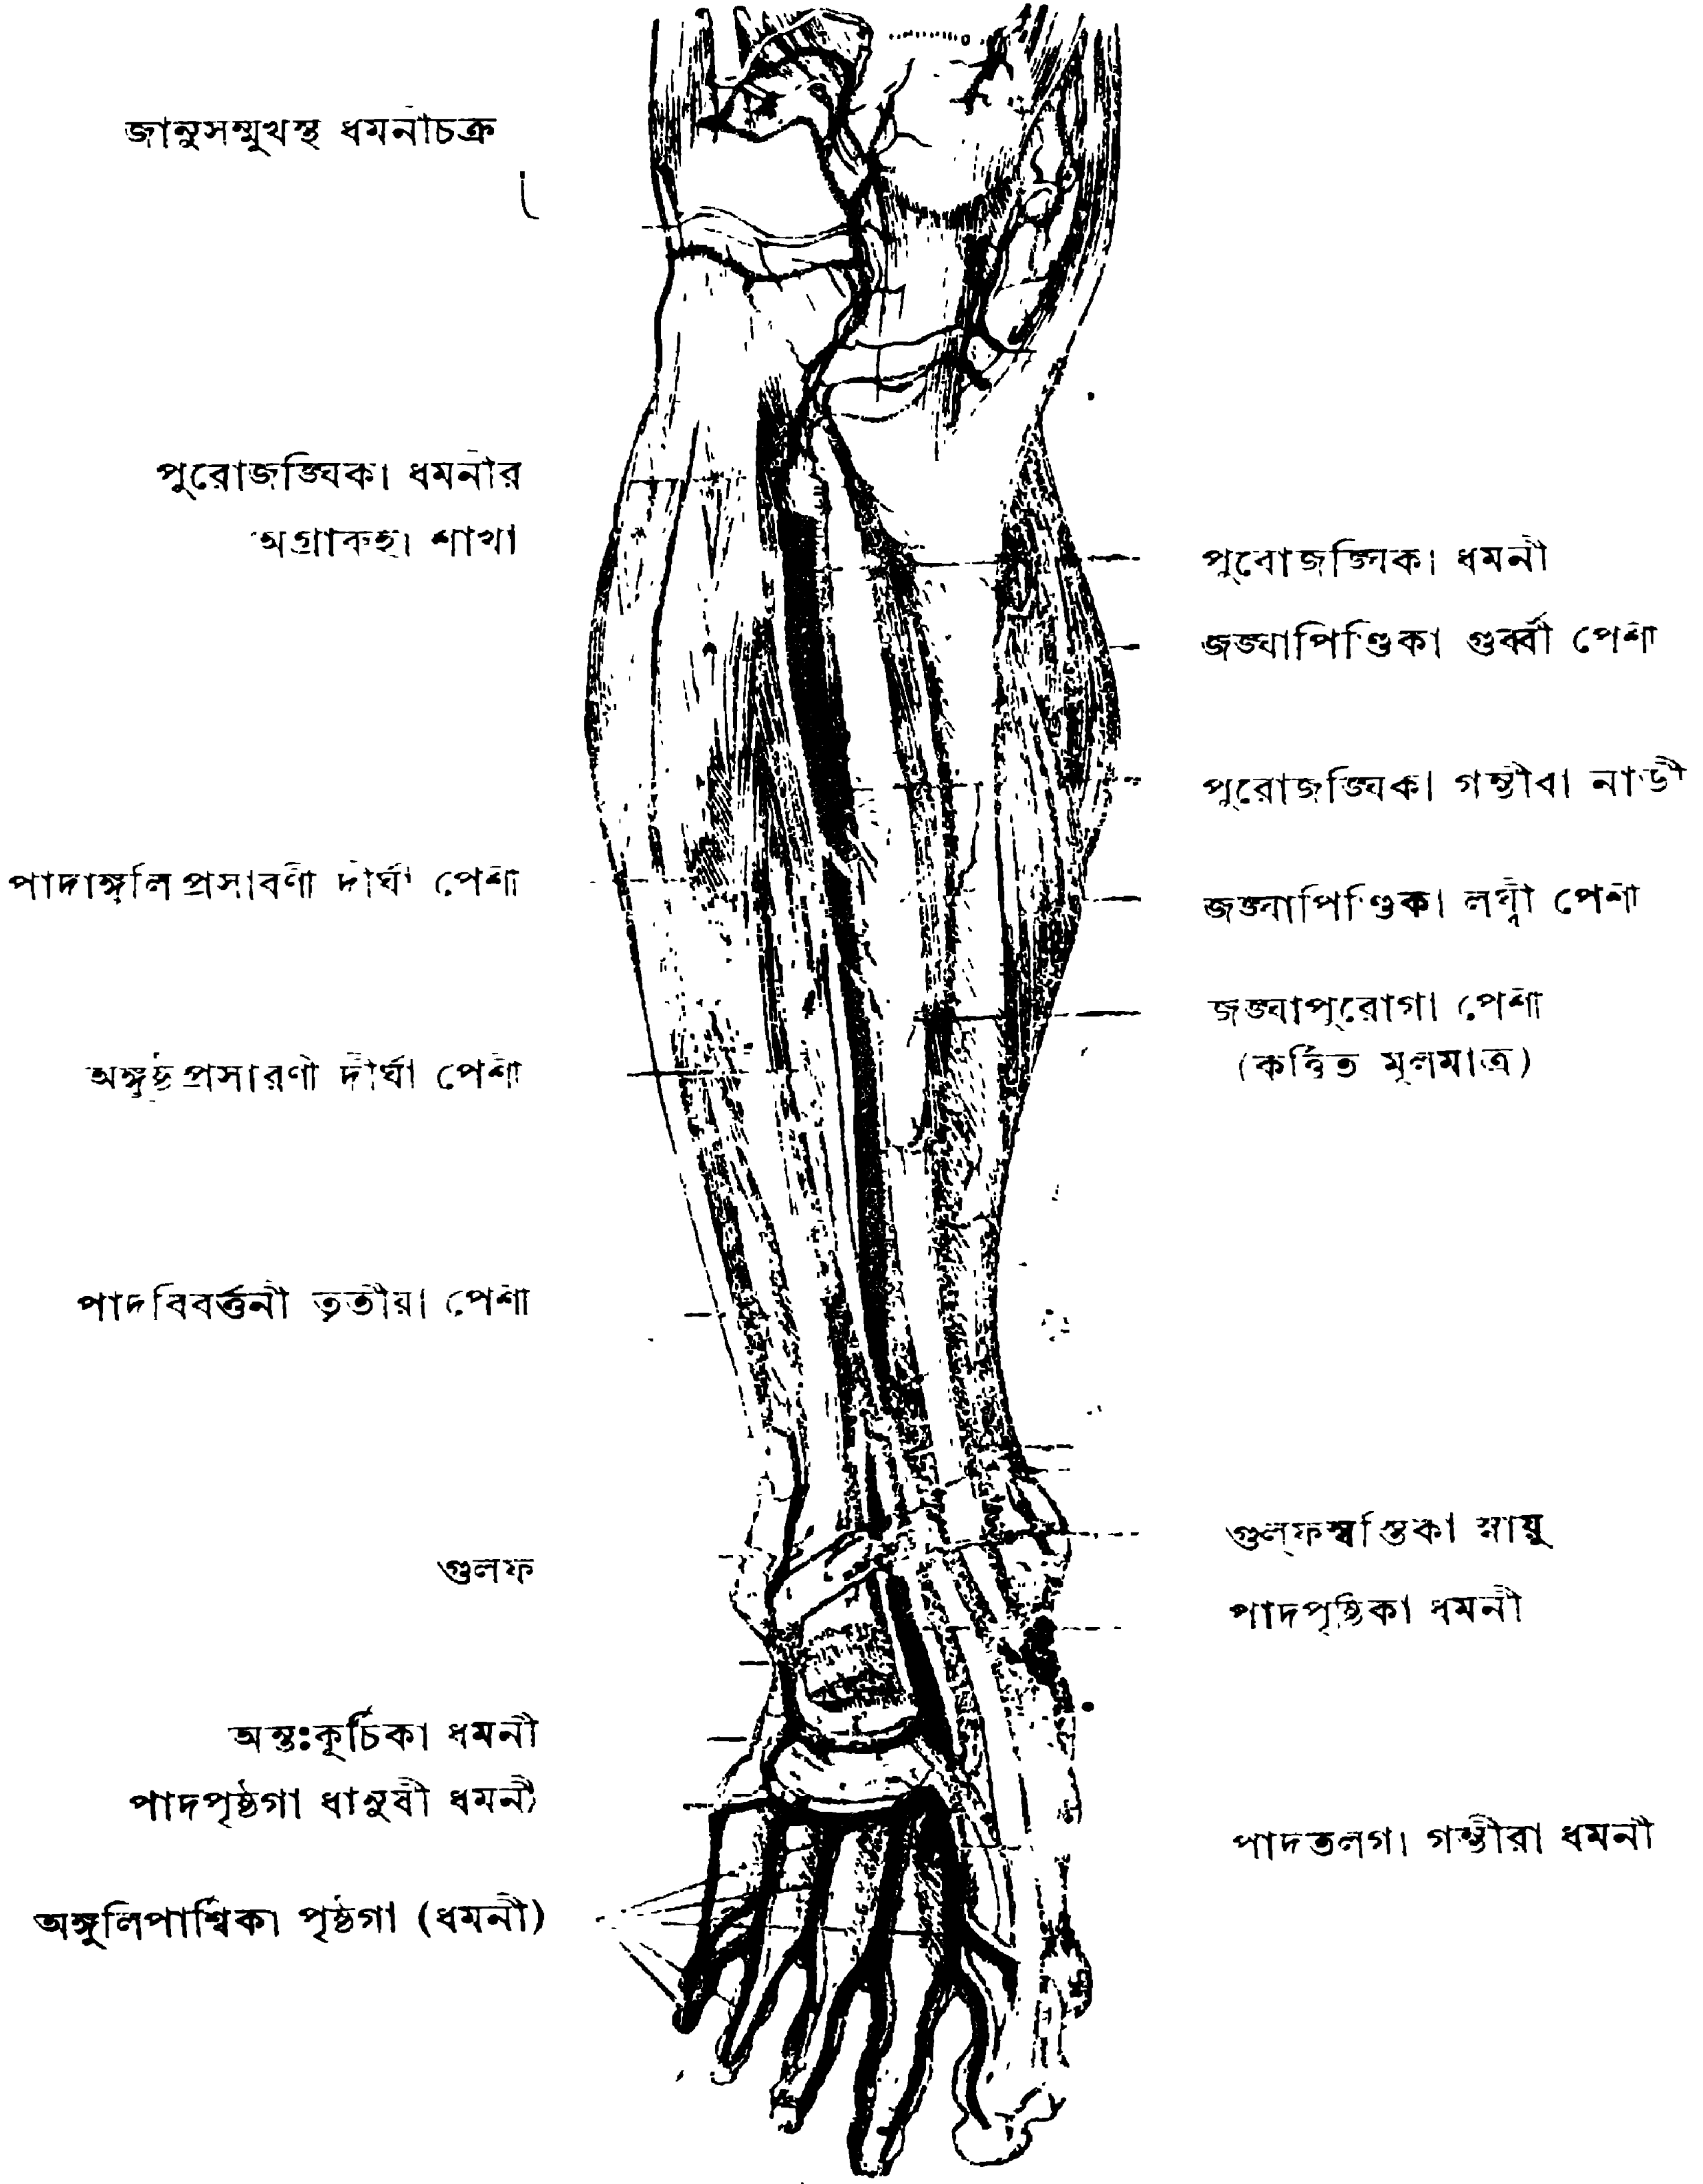 জানুসম্মুখস্থ ধমনীচক্র
পুরোজঙ্ঘিকা ধমনীর
অগ্রারুহা শাখা
পাদাঙ্গুলিপ্রসারণী দীর্ঘা পেশী
অঙ্গুষ্ঠপ্রসারণী দীর্ঘা পেশী
পাদবিবর্ত্তনী তৃতীয়া পেশী
গুলফ
অন্তঃকূর্চিকা ধমনী
পাদপৃষ্ঠগা ধানুষী ধমনী
অঙ্গুলিপার্শ্বিকা পৃষ্ঠগা (ধমনী)
পুরোজঙ্ঘিকা ধমনী
জঙ্ঘাপিণ্ডিকা গুর্ব্বী পেশী
পুরোজঙ্ঘিকা গম্ভীরা নাড়ী
জঙ্ঘাপিণ্ডিকা লঘ্বী পেশী
জঙ্ঘাপুরোগা পেশী
(কর্ত্তিত মূলমাত্র)
গুল্‌ফস্বস্তিকা স্নায়ু
পাদপৃষ্ঠিকা ধমনী
পাদতলগা গম্ভীরা ধমনী